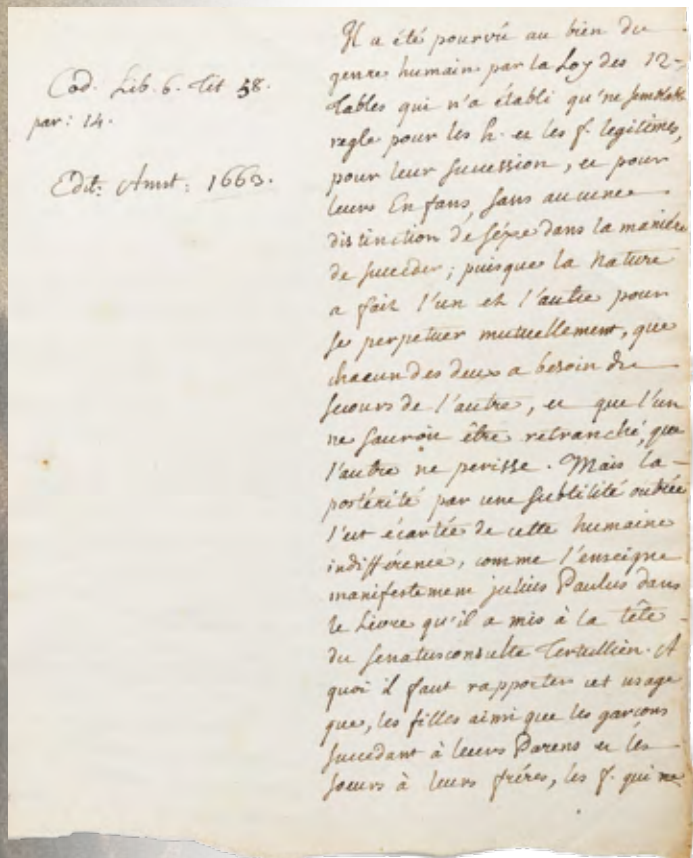 Cod. Lib. 6. Tit 58.
par: 14.
Edit: Amst: 1663.
Il a été pourvû au bien du
genre humain par la Loy des 12-
Tables qui n'a établi qu'ne semblable
regle pour les h. et les f. legitimes,
pour leur sucession, et pour
leurs Enfans, sans aucune
distinction de séxe dans la maniére
de succeder; puisque la Nature
a fait l'un et l'autre pour
se perpetuer mutuellement, que
chacun des deux a besoin du
secours de l'autre, et que l'un
ne sauroit être retranché, que
l'autre ne perisse. Mais la
postérité par une subtilité outrée
s'est écartée de cette humaine
indifférence, comme l'enseigne
manifestement julius Paulus dans
le Livre qu'il a mis à la tête
du senatusconsulte Tertullien. A
quoi il faut rapporter cet usage
que, les filles ainsi que les garçons
succedant à leurs Parens et les
soeurs à leurs fréres, les f. qui ne